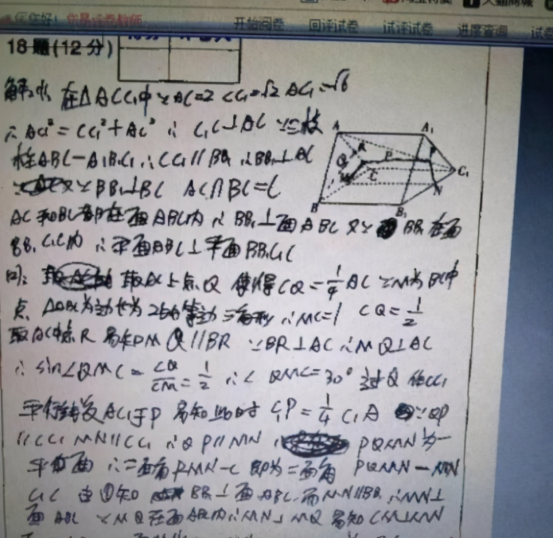 你好！
开始阅卷 回评试卷 试评试卷 进度查询 试
18题(12分)
解：(1) 在△ACC₁中 ∵AC=2 CC₁=√2 AC₁=√6
∴AC₁²=CC₁²+AC² ∴C₁C⊥AC ∵三棱
柱ABC-A₁B₁C₁ ∴CC₁//BB₁ ∴BB₁⊥AC
又∵BB₁⊥BC AC∩BC=C
AC和BC都在面ABC内 ∴BB₁⊥面ABC 又∵BB₁在面
BB₁C₁C内 ∴平面ABC⊥平面BB₁C₁C
取AC上点Q 使得CQ=1/4AC ∵M为BC中
点 △ABC为边长为2的等边三角形 ∴MC=1 CQ=1/2
取AC中点R 易知MQ//BR ∵BR⊥AC ∴MQ⊥AC
∴sin∠QMC=CQ/CM=1/2 ∴∠QMC=30° 过Q作CC₁
平行线交AC₁于P 易知此时C₁P=1/4C₁A ∵QP
//CC₁ MN//CC₁ ∴QP//MN PQMN为一
平面 ∴二面角PMN-C即为二面角PQMN-MN
C₁C 由①知 BB₁⊥面ABC 而MN//BB₁ ∴MN⊥
面ABC ∵MQ在面ABC内 ∴MN⊥MQ 易知CM⊥MN
A
A₁
R
Q
P
M
C
C₁
N
B
B₁